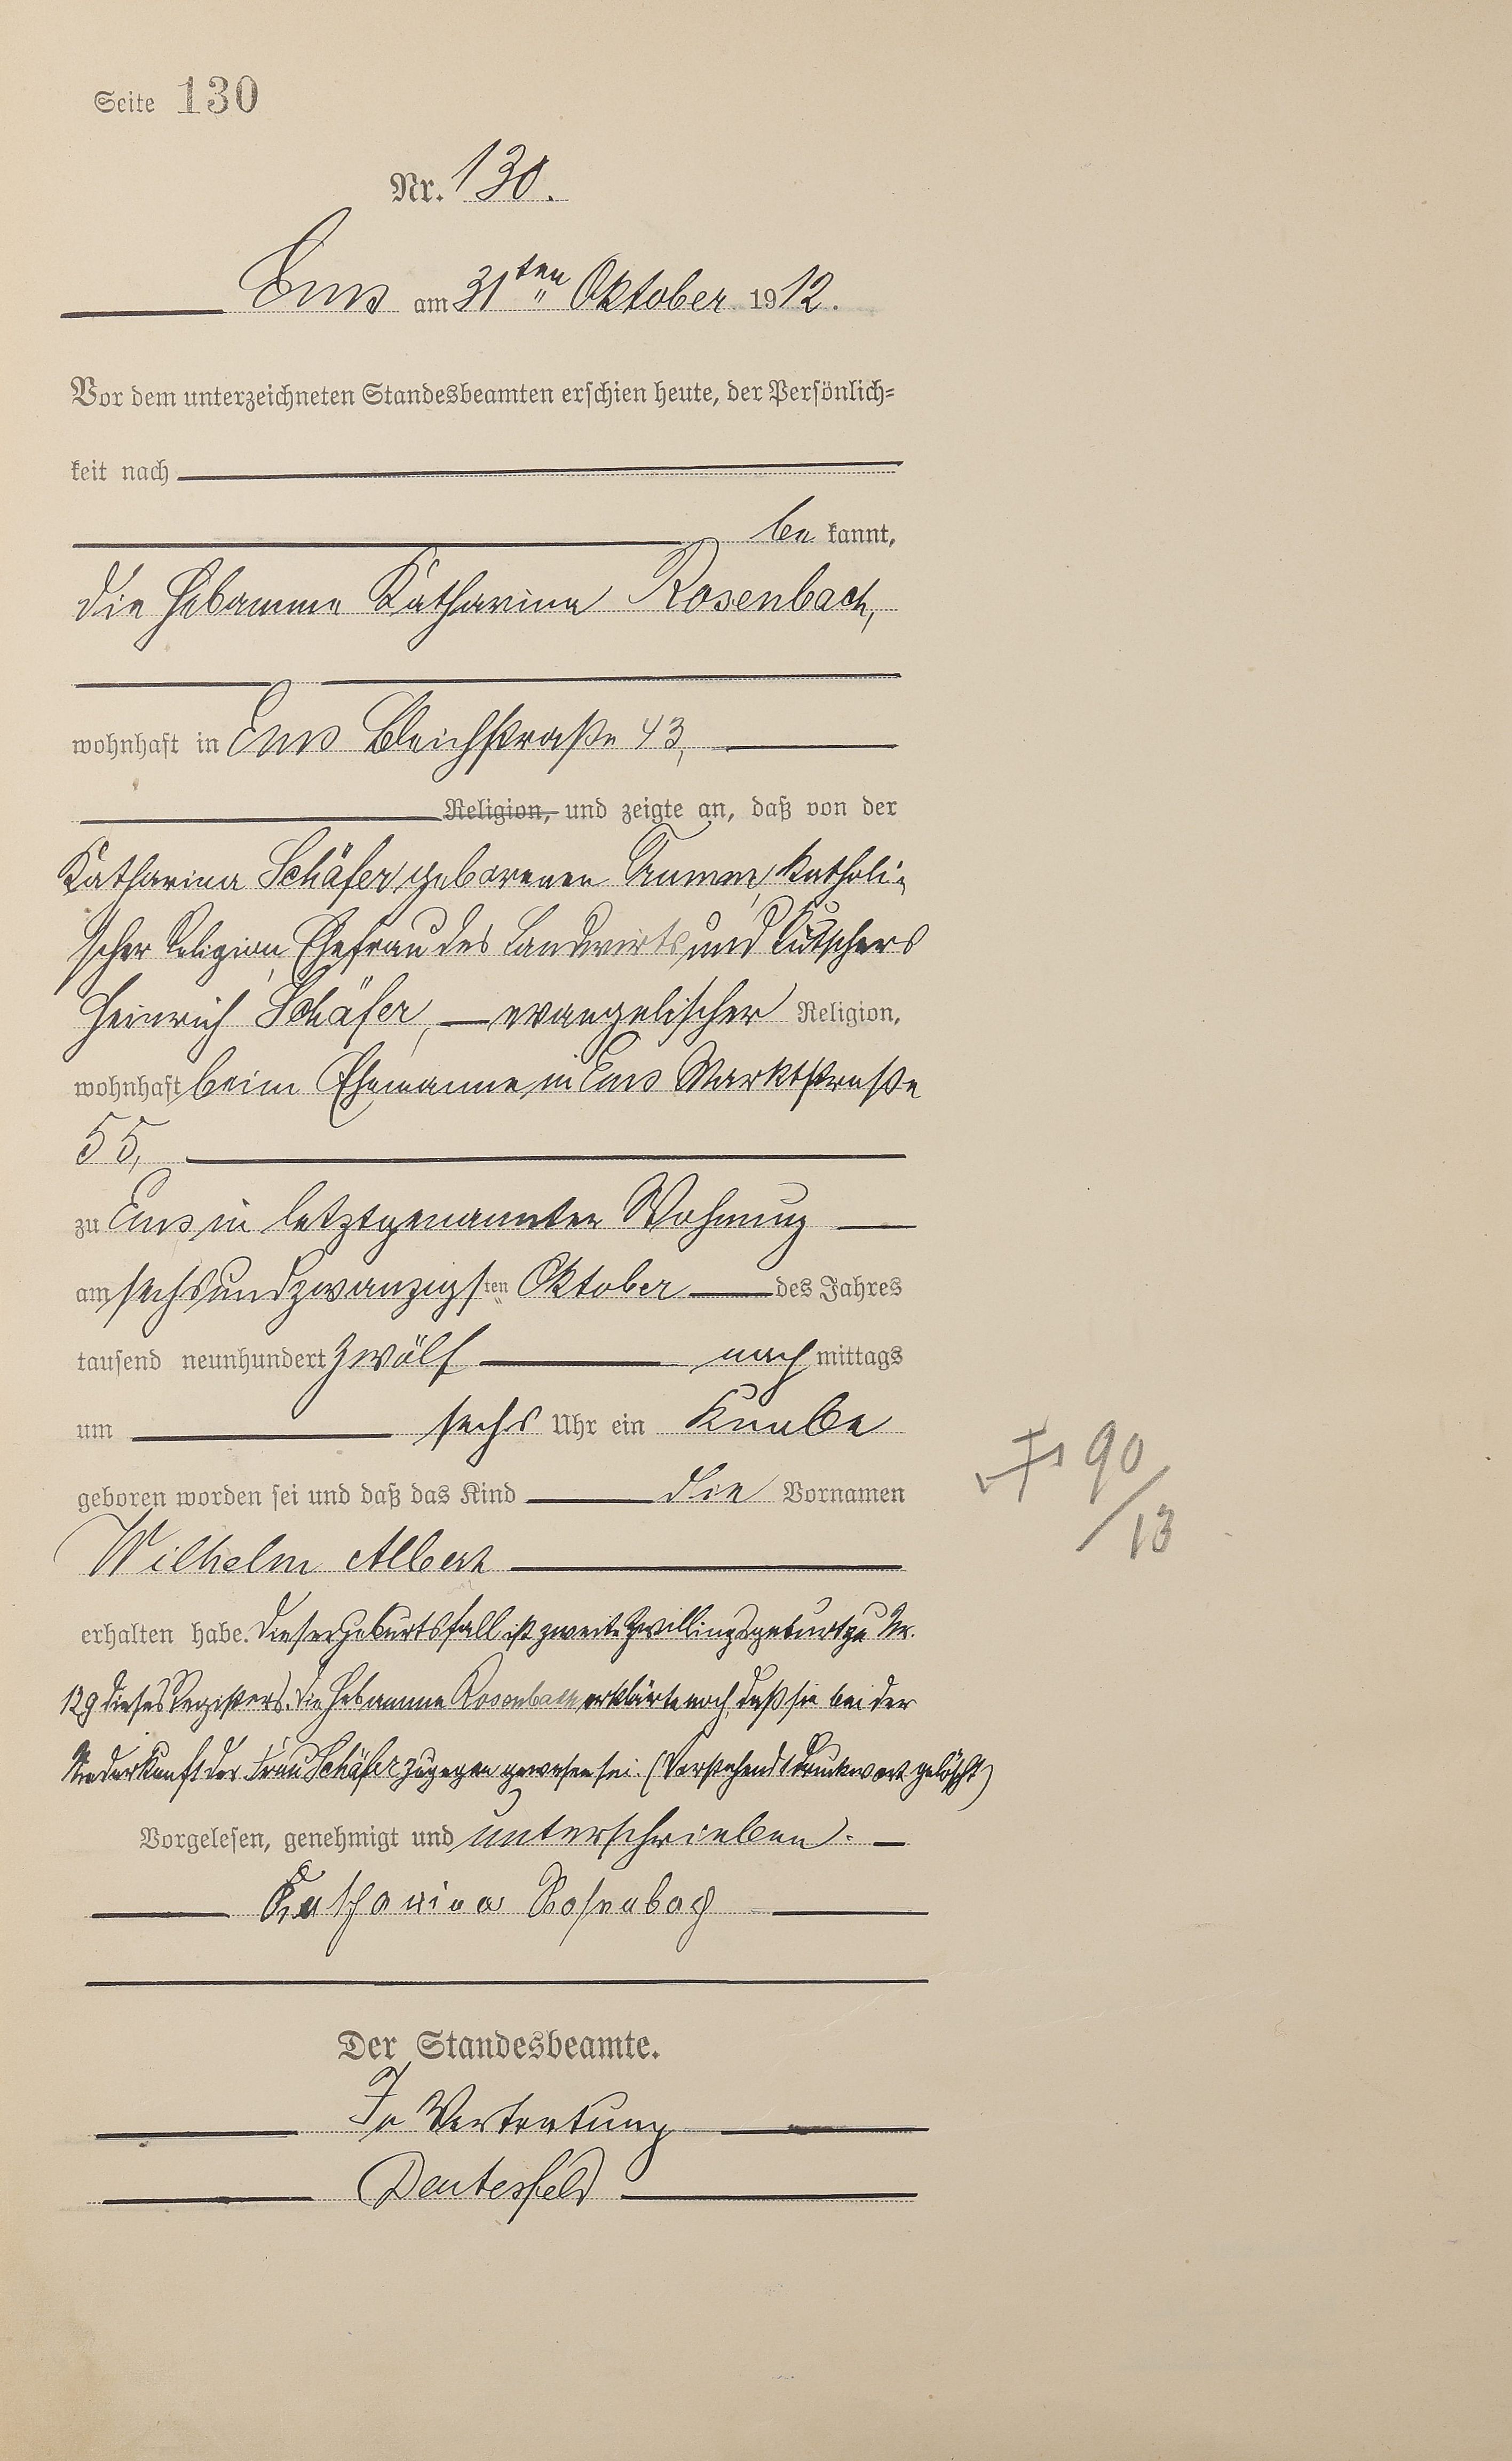 Seite 130
Nr. 130.
Ems am 31ten Oktober 1912.
Vor dem unterzeichneten Standesbeamten erschien heute, der Persönlich=
keit nach
be kannt,
die Hebamme Katharina Rosenbach,
wohnhaft in Ems Bleichstraße 43,
Religion, und zeigte an, daß von der
Katharina Schäfer geborenen katholi-
scher Religion, Ehefrau des Landwirts und Kutschers
Heinrich Schäfer, — evangelischer Religion,
wohnhaft beim Ehemanne in Ems Marktstraße
55,
zu Ems in letztgenannter Wohnung
am sechsundzwanzigsten Oktober des Jahres
tausend neunhundert zwölf nachmittags
um sechs Uhr ein Knabe
geboren worden sei und daß das Kind die Vornamen
Wilhelm Albert
erhalten habe. Dieser Geburtsfall ist zweite Zwillingsgeburt zu Nr.
129 dieses Registers. Die Hebamme Rosenbach erklärte noch, daß sie bei der
Niederkunft der Frau Schäfer zugegen gewesen sei. (Vorstehend 1 Druckwort gelöscht)
Vorgelesen, genehmigt und unterschrieben.
Katharina Rosenbach
Der Standesbeamte.
In Vertretung
90/13